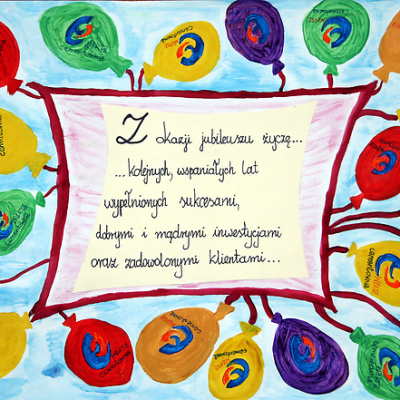 Z okazji jubileuszu życzę...
...kolejnych, wspaniałych lat
wypełnionych sukcesami,
dobrymi i mądrymi inwestycjami
oraz zadowolonymi klientami...